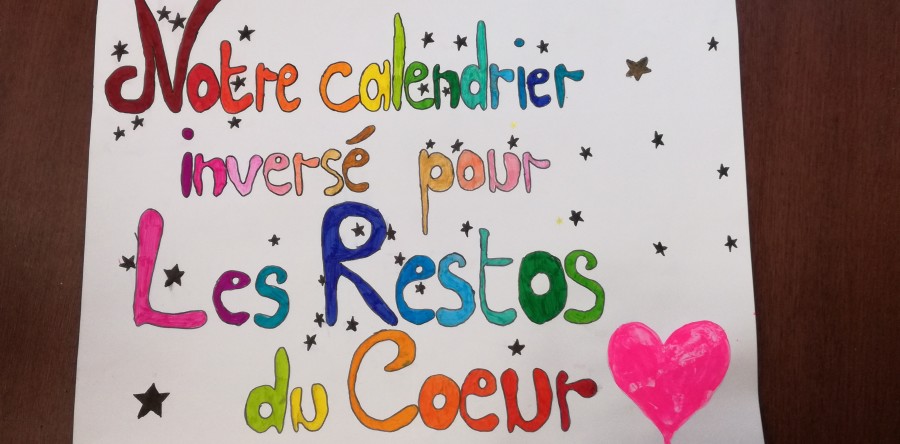 Notre calendrier
inversé pour
Les Restos
du Coeur